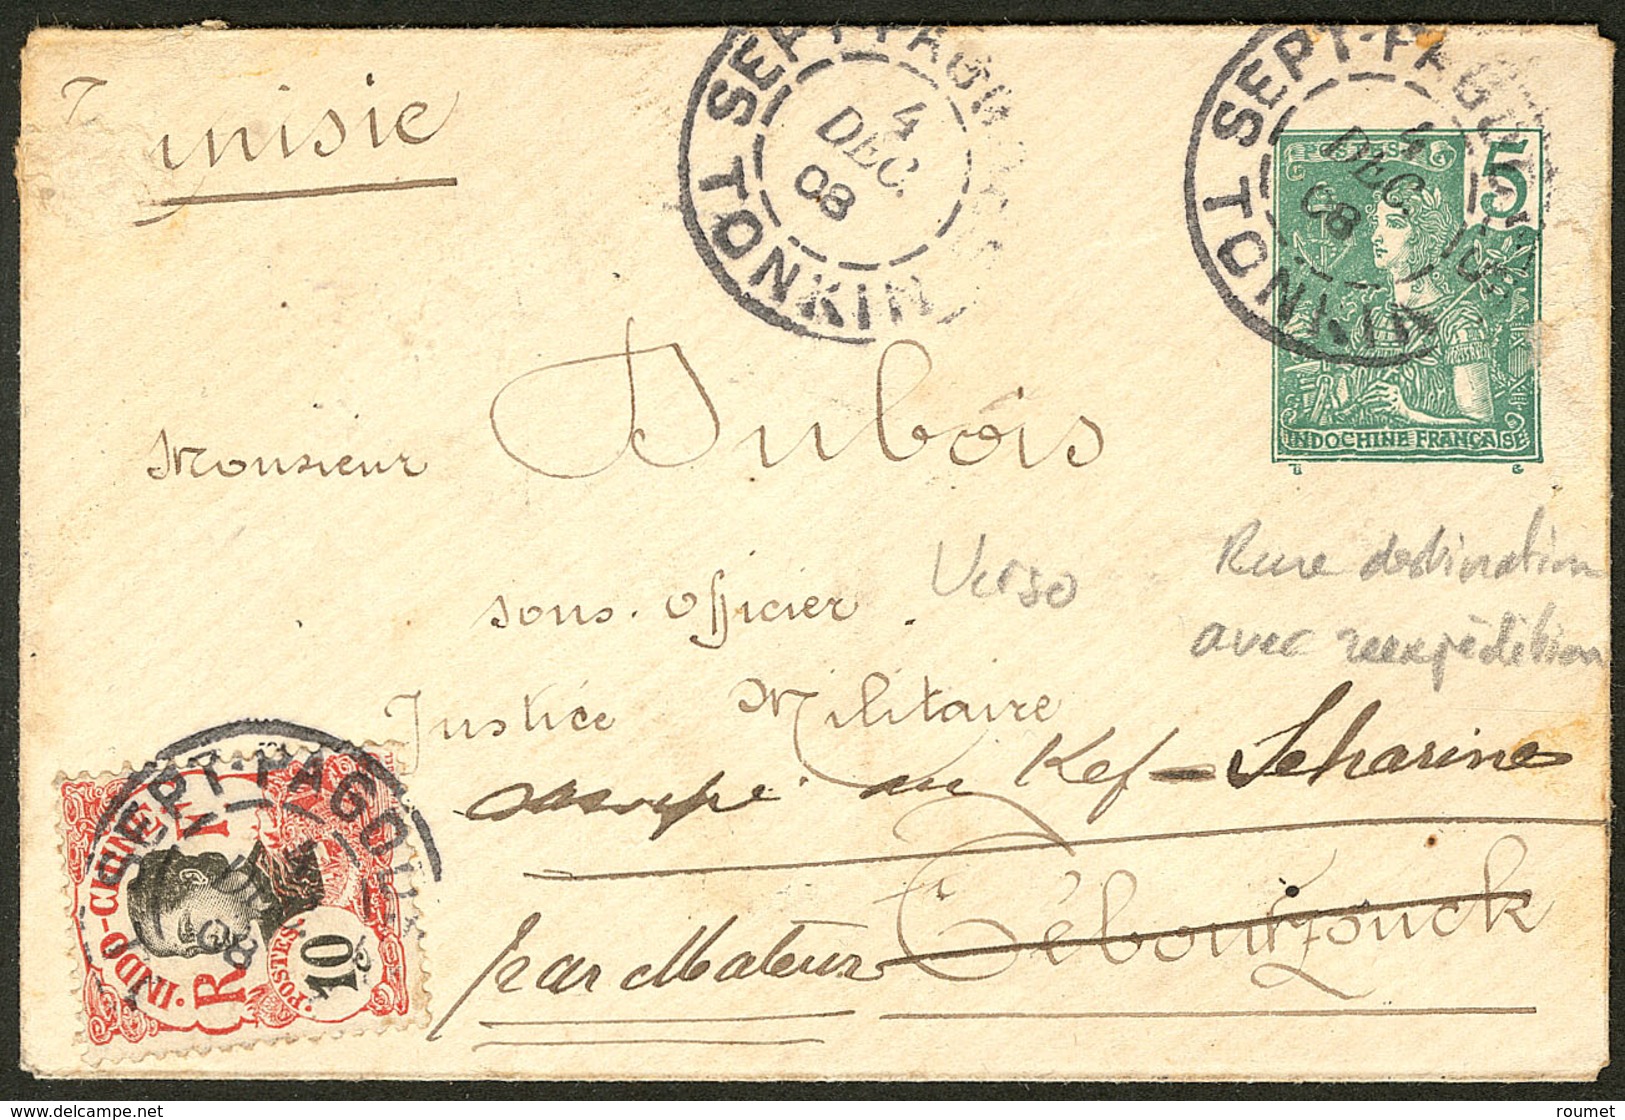 Tunisie
SEPT-PAGODES
TONKIN
4
DEC.
08
SEPT-PAGODES
TONKIN
4
DEC.
08
POSTES
5
INDOCHINE FRANÇAISE
Monsieur Dubois
Verso
Rare destination
avec réexpédition
sous. Officier
Justice Militaire
au Kef-
par Mateur
Tébourzouck
SEPT-PAGOD
DEC
08
INDO-CHINE
R F
POSTES
10
delcampe.net
roumet